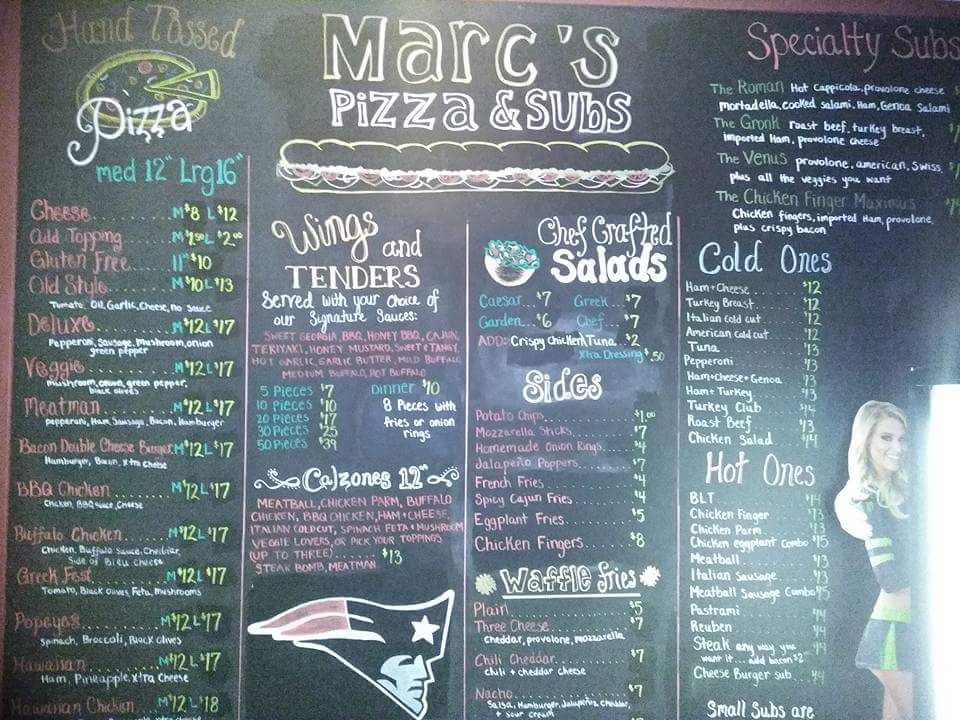 Hand Tossed
Pizza
med 12" Lrg 16"
Cheese........M $8 L $12
Add Topping....M $1.50 L $2.00
Gluten Free....11" $10
Old Style......M $10 L $13
Tomato, Oil, Garlic, Cheese, no sauce
Deluxe........M $12 L $17
Pepperoni, Sausage, Mushroom, onion
green pepper
Veggie........M $12 L $17
mushroom, onion, green pepper,
black olives
Meatman.......M $12 L $17
pepperoni, Ham, Sausage, Bacon, Hamburger
Bacon Double Cheese Burger M $12 L $17
Hamburger, Bacon, xtra Cheese
BBQ Chicken.....M $12 L $17
Chicken, BBQ sauce, Cheese
Buffalo Chicken....M $12 L $17
Chicken, Buffalo Sauce, Cheddar,
Side of Bleu Cheese
Greek Fest......M $12 L $17
Tomato, Black Olives, Feta, mushrooms
Popeyes........M $12 L $17
Spinach, Broccoli, Black Olives
Hawaiian.......M $12 L $17
Ham, Pineapple, xtra Cheese
Hawaiian Chicken....M $12 L $18
Marc's
Pizza & Subs
Wings
and
TENDERS
Served with your choice of
our Signature Sauces:
SWEET GEORGIA BBQ, HONEY BBQ, CAJUN,
TERIYAKI, HONEY MUSTARD, SWEET & TANGY,
HOT GARLIC, GARLIC BUTTER, MILD BUFFALO,
MEDIUM BUFFALO, HOT BUFFALO
5 Pieces $7
10 Pieces $10
20 Pieces $17
30 Pieces $25
50 Pieces $39
Dinner $10
8 Pieces with
fries or onion
rings
Calzones 12"
MEATBALL, CHICKEN PARM, BUFFALO
CHICKEN, BBQ CHICKEN, HAM & CHEESE,
ITALIAN COLDCUT, SPINACH FETA & MUSHROOM
VEGGIE LOVERS, OR PICK YOUR TOPPINGS
(UP TO THREE)........ $13
STEAK BOMB, MEATMAN
Chef Crafted
Salads
Caesar...$7 Greek...$7
Garden...$6 Chef...$7
ADD: Crispy Chicken/Tuna..$2
Xtra Dressing $.50
Sides
Potato Chips......$1.00
Mozzarella Sticks.....$7
Homemade Onion Rings...$4
Jalapeño Poppers......$7
French Fries........$4
Spicy Cajun Fries.....$4
Eggplant Fries.......$5
Chicken Fingers......$8
Waffle fries
Plain............$5
Three Cheese.......$7
cheddar, provolone, mozzarella
Chili Cheddar.......$7
chili + cheddar cheese
Nacho............$7
Salsa, Hamburger, Jalapeños, cheddar,
+ sour cream
Specialty Subs
The Roman Hot Cappicola, provolone cheese
mortadella, cooked salami, Ham, Genoa Salami
The Gronk roast beef, turkey breast,
imported Ham, provolone cheese
The Venus provolone, american, Swiss
plus all the veggies you want
The Chicken Finger Maximus
Chicken fingers, imported Ham, provolone,
plus crispy bacon
Cold Ones
Ham + Cheese........$12
Turkey Breast........$12
Italian Cold cut......$12
American Cold cut.....$12
Tuna............$13
Pepperoni.........$13
Ham + Cheese + Genoa....$13
Ham + Turkey........$13
Turkey Club........$14
Roast Beef........$13
Chicken Salad.......$14
Hot Ones
BLT............$14
Chicken Finger......$13
Chicken Parm.......$13
Chicken eggplant Combo..$15
Meatball.........$13
Italian Sausage......$13
Meatball Sausage Combo $15
Pastrami.........$14
Reuben..........$14
Steak any way you
want it...add bacon $2
Cheese Burger sub....$14
Small Subs are